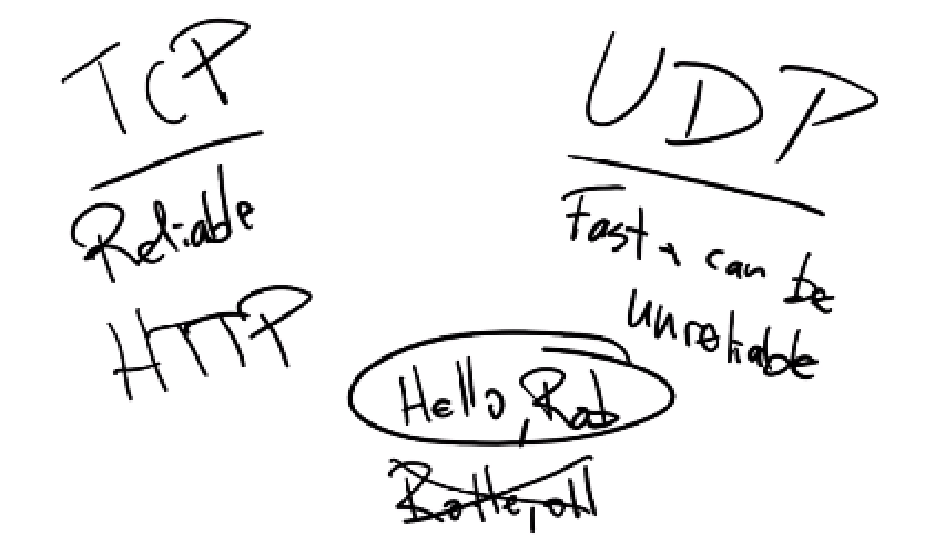 TCP
Reliable
HTTP
UDP
Fast, can be
unreliable
Hello, Rob